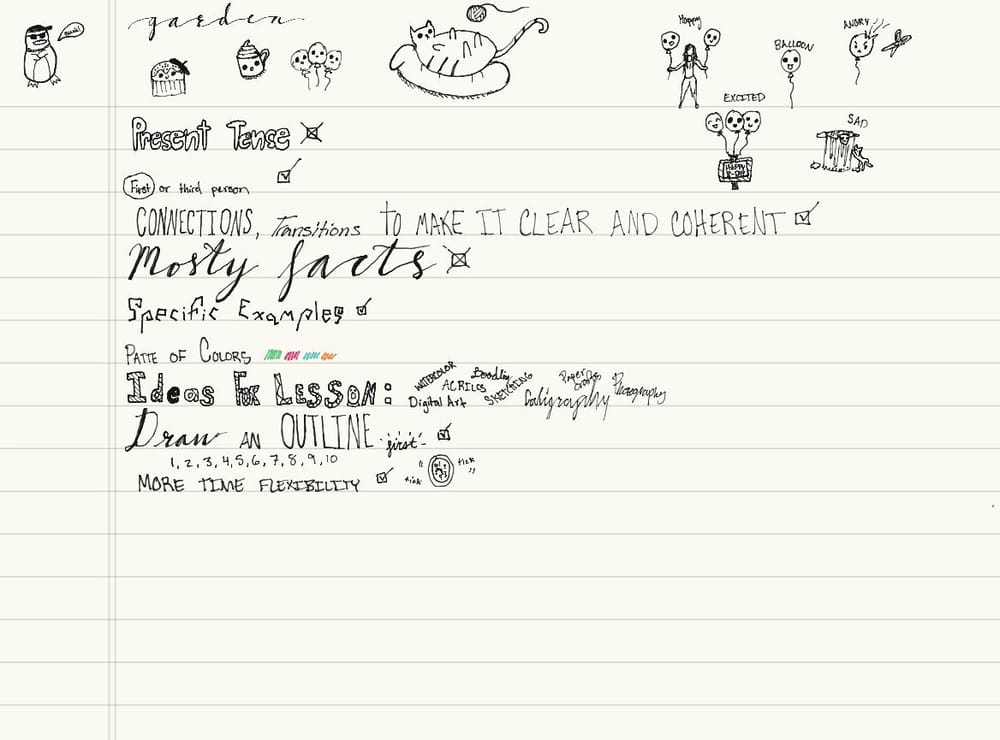 garden
Happy
BALLOON
ANGRY
EXCITED
SAD
Present Tense
First or third person
CONNECTIONS, Transitions to MAKE IT CLEAR AND COHERENT
Mosty facts
Specific Examples
PATTE OF COLORS
Ideas For LESSON:
WATERCOLOR Doodling Paper crafts Photography
ACRILCS SKETCHING
Digital Art Caligraphy
Draw AN OUTLINE first
1, 2, 3, 4, 5, 6, 7, 8, 9, 10
MORE TIME FLEXIBILITY "tick tick"